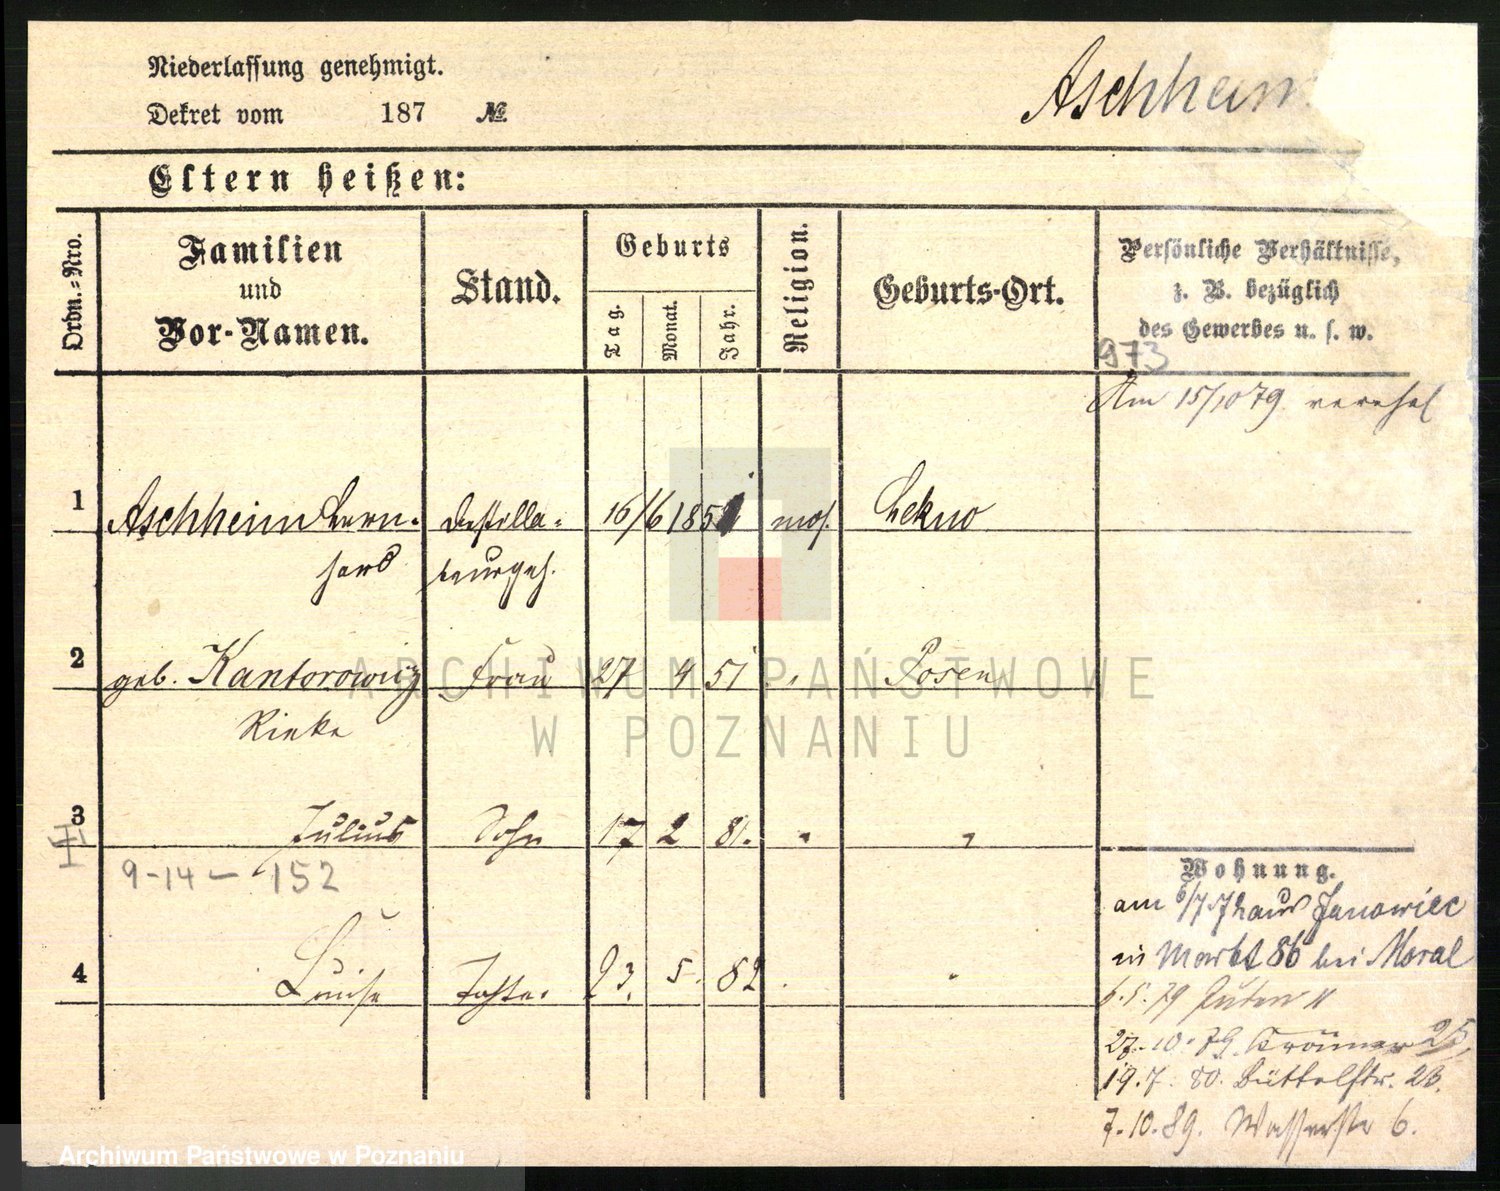 Niederlassung genehmigt.
Dekret vom 187 №
Aschheim
Eltern heißen:
Ordn.-Nro.
Familien
und
Vor-Namen.
Stand.
Geburts
Tag.
Monat.
Jahr.
Religion.
Geburts-Ort.
Persönliche Verhältnisse,
z. B. bezüglich
des Gewerbes u. s. w.
973
Am 15/10 79 verehel
1 Aschheim Bern- Destilla- 16/6 185 mos. Lekno
hard teurgeh.
2 geb. Kantorowicz Frau 27 4 51 " Posen
Rieke
3 Julius Sohn 17 2 81. " "
II
9-14 - 152
4 Luise Tochter 23. 5. 82 "
Wohnung.
am 6/7 72 aus Janowiec
in Markt 86 bei Moral
6.5.79
27.10.79. Krämer 25,
19.7.80. Büttelstr. 23.
7.10.89. Wasserstr 6.
ARCHIWUM PAŃSTWOWE
W POZNANIU
Archiwum Państwowe w Poznaniu